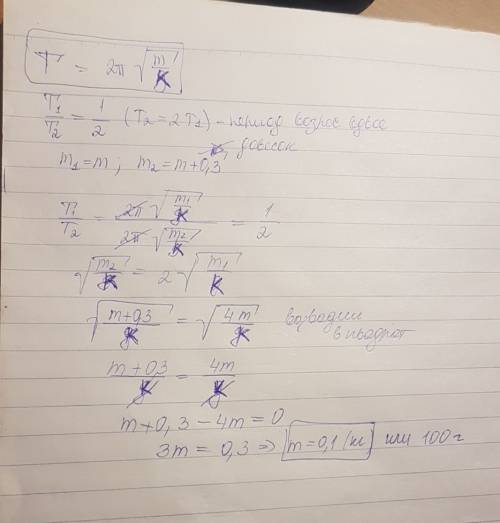 T = 2π √(m/k)
T1/T2 = 1/2 (T2 = 2T1) - период возрос вдвое
m1 = m ; m2 = m+0,3 довесок
T1/T2 = 2π√(m1/k) / 2π√(m2/k) = 1/2
√(m2/k) = 2 √(m1/k)
√((m+0,3)/k) = √(4m/k) возводим в квадрат
(m+0,3)/k = 4m/k
m+0,3-4m=0
3m = 0,3 => m=0,1 (кг) или 100 г